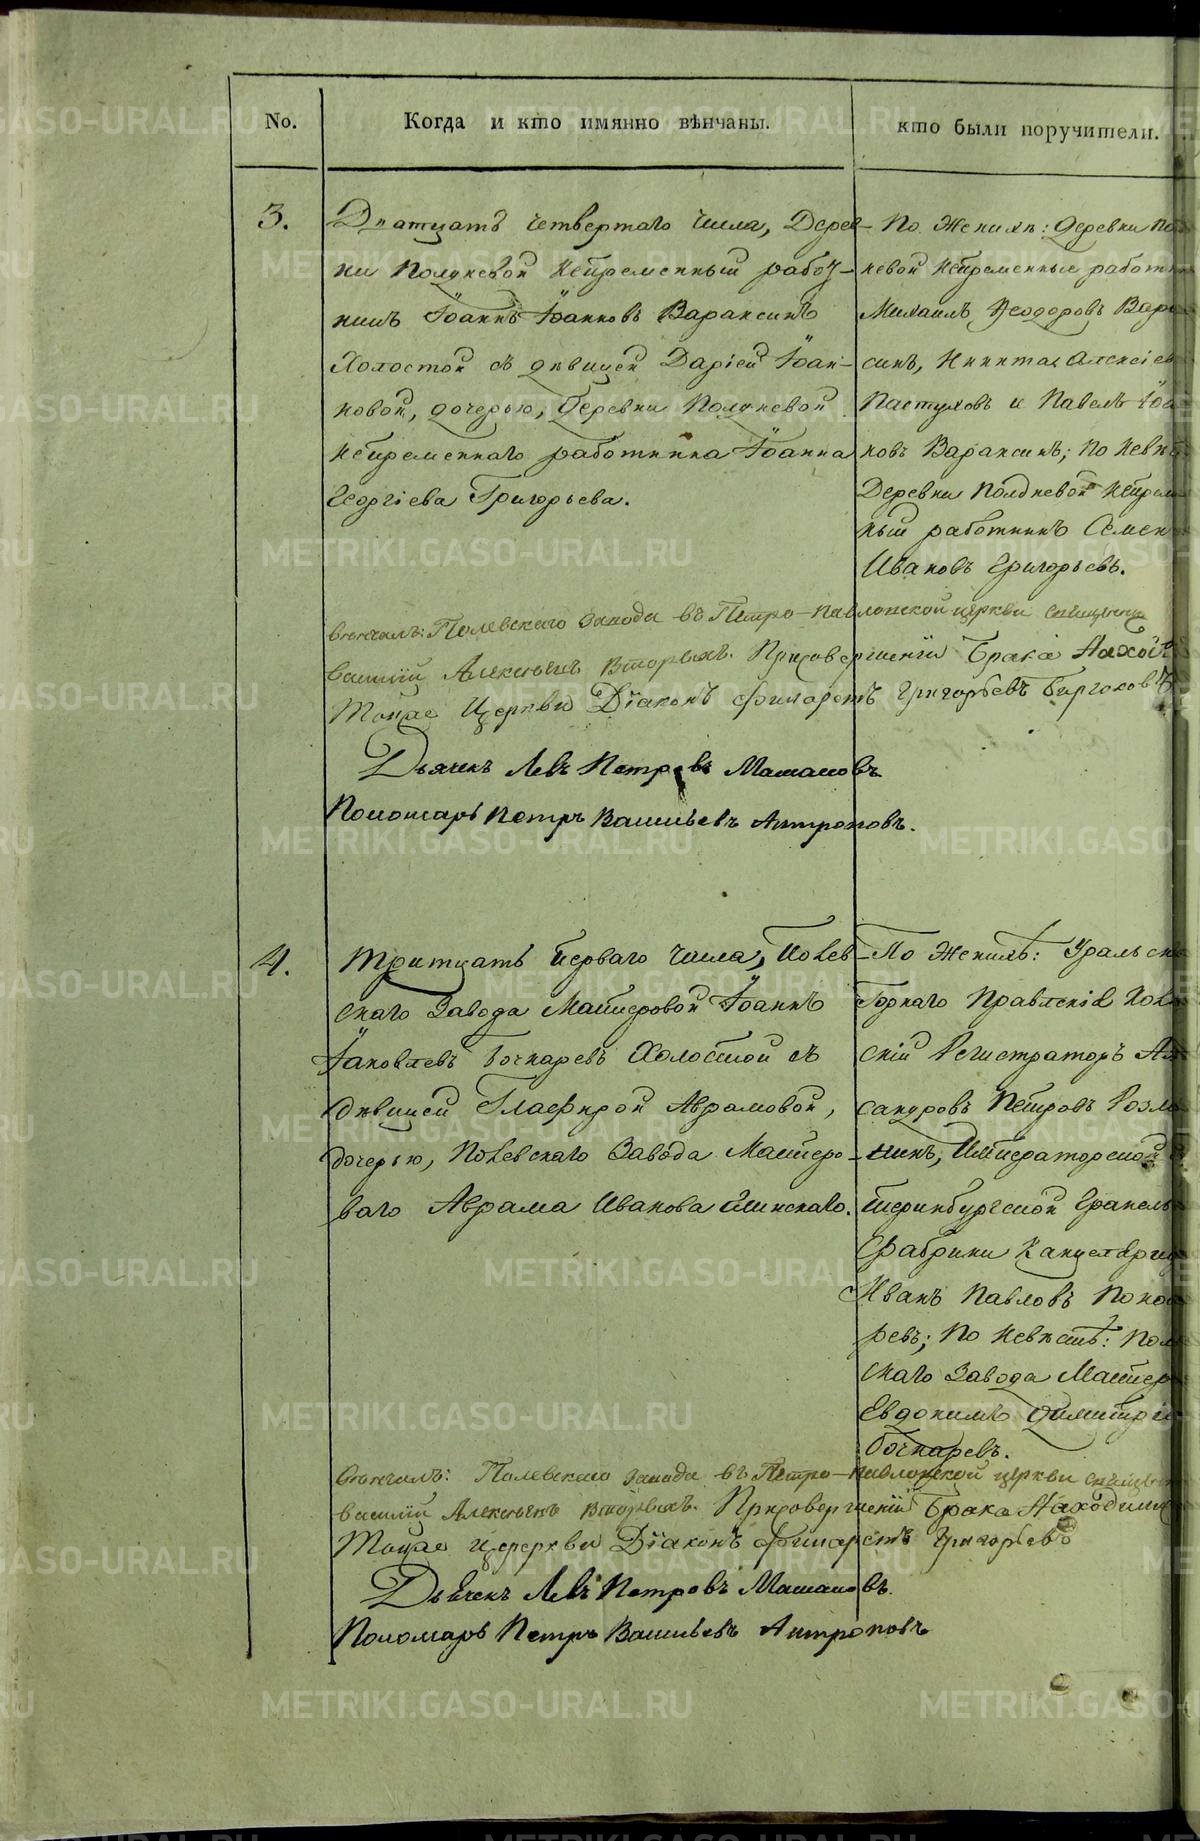 No.
Когда и кто имянно вѣнчаны.
кто были поручители.
3.
Дватцать четвертаго числа, Дерев-
ни Полдневой непременный работ-
никъ Іоаннъ Іоанновъ Вараксинъ
Холостой съ дѣвицей Даріей Іоан-
новой, дочерью, Деревни Полдневой
непременнаго работника Іоанна
Георгіева Григорьева.
По Женихѣ: Деревни Пол
невой непременные работни
Михаилъ Ѳеодоровъ Варак
синъ, Никита Алексіев
Пастуховъ и Павелъ Іоа
новъ Вараксинъ; по невѣс
Деревни Полдневой непреме
ный работникъ Семенъ
Ивановъ Григорьевъ.
Вѣнчалъ: Полевскаго завода въ Петро-Павловской церкви священник
Василій Алексѣевъ Вторыхъ. При совершеніи Брака Находи
Тояже Церкви Діаконъ Филаретъ Григорьевъ Бирюковъ
Дьячекъ Левъ Петровъ Мамаловъ
Пономарь Петръ Васильевъ Антроповъ.
4.
Тритцать перваго числа, Полев-
скаго Завода Мастеровой Іоаннъ
Іаковлевъ Бочкаревъ Холостой съ
дѣвицей Глафирой Аврамовой,
дочерью, Полевскаго Завода Мастеро-
ваго Аврама Иванова
По Женихѣ: Уральска
Горнаго Правленія Колле
скій Регистраторъ Ал
сандровъ Петровъ
Императорской
теринбургской Граниль
Фабрики Канцелярис
Иванъ Павловъ Поно
ревъ; по невѣстѣ: Поле
скаго Завода Мастеро
Евдокимъ Димитріе
Бочкаревъ.
Вѣнчалъ: Полевскаго завода въ Петро-Павловской церкви священ
Василій Алексѣевъ Вторыхъ. При совершеніи Брака Находилися
Тояже Церкви Діаконъ Филаретъ Григорьевъ
Дьячекъ Левъ Петровъ Мамаловъ.
Пономарь Петръ Васильевъ Антроповъ
METRIKI.GASO-URAL.RU